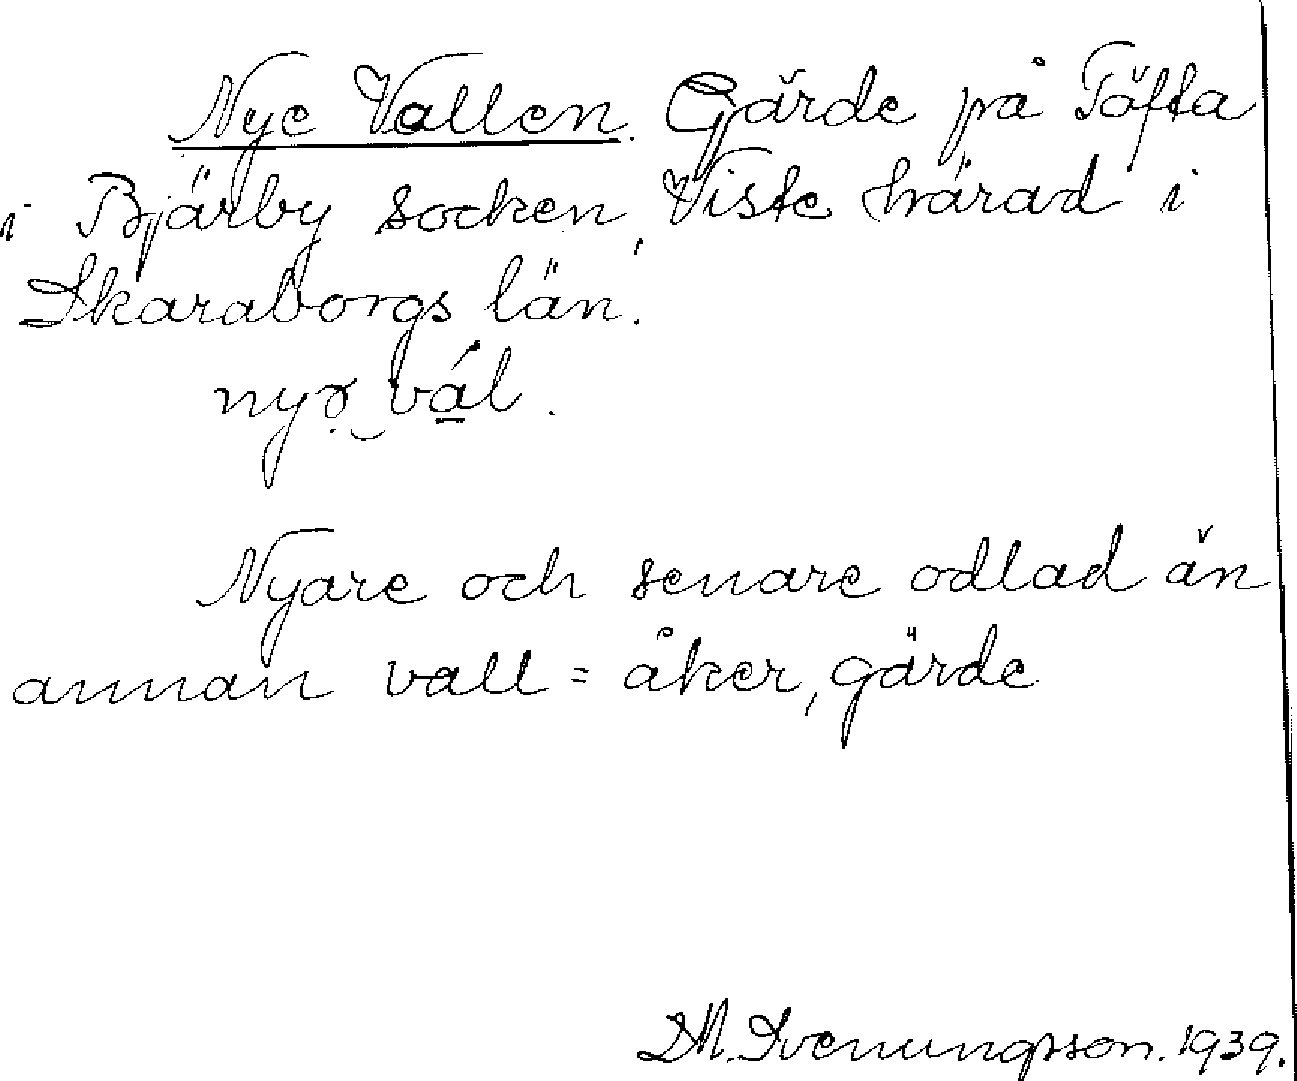 Nye Vallen. Gärde på Töfta
i Bjärby socken, Viste härad i
Skaraborgs län.
Nyare och senare odlad än
annan vall = åker, gärde
D.M. Svenungsson. 1939.